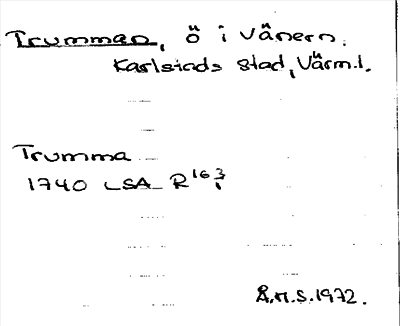 Trumman, ö i Vänern.
Karlstads stad, Värml.
Trumma
1740 LSA R 16 3/1
Å.H.S. 1972.